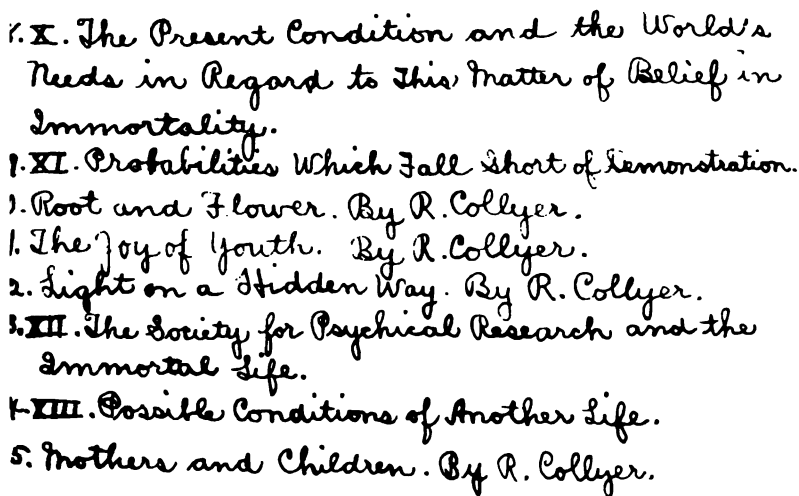 X. The Present Condition and the World's
Needs in Regard to This Matter of Belief in
Immortality.
XI. Probabilities Which Fall Short of Demonstration.
Root and Flower. By R. Collyer.
1. The Joy of Youth. By R. Collyer.
2. Light on a Hidden Way. By R. Collyer.
3. XII. The Society for Psychical Research and the
Immortal Life.
XIII. Possible Conditions of Another Life.
5. Mothers and Children. By R. Collyer.